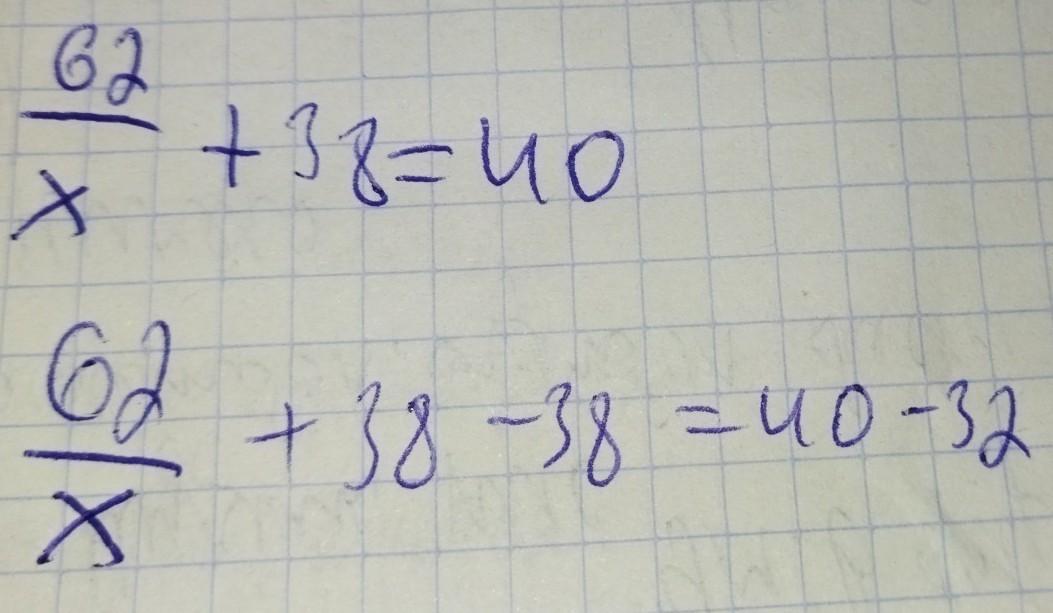 62/x + 38 = 40
62/x + 38 - 38 = 40 - 32